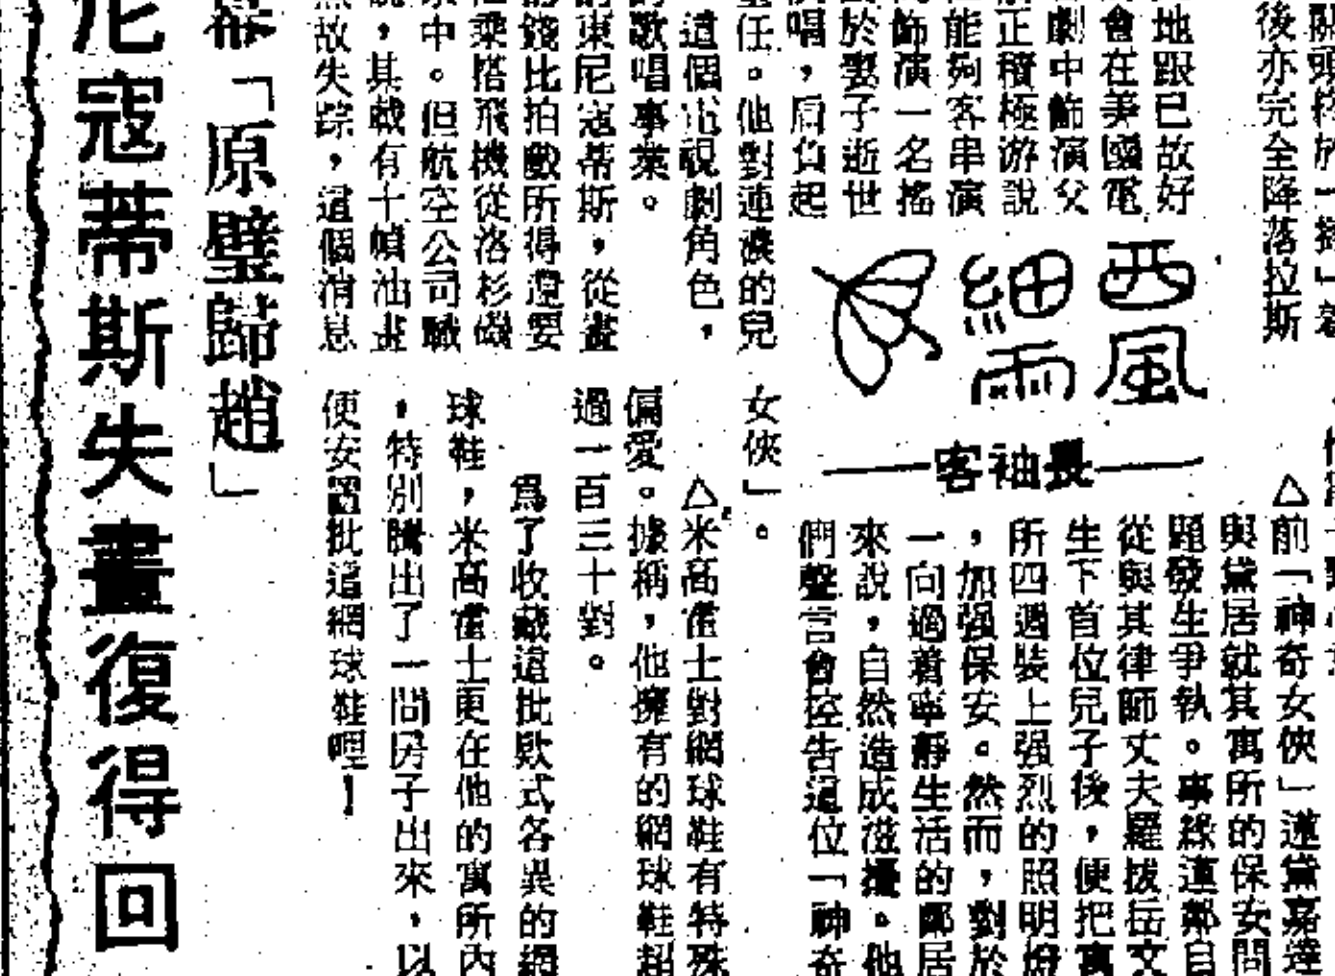 後亦完全降落拉斯
地跟已故好
會在美國電
劇中飾演父
正積極游說
能夠客串演
飾演一名搖
於妻子逝世
唱，肩負起
任。他對連濃的兒
這個電視劇角色，
歌唱事業。
東尼寇蒂斯，從畫
錢比拍戲所得還要
乘搭飛機從洛杉磯
中。但航空公司職
有十幀油畫
故失踪，這個消息
幕「原璧歸趙」
尼寇蒂斯失畫復得回
西風
細雨
長袖客
△前「神奇女俠」蓮黛嘉達
與黛居就其寓所的保安問
題發生爭執。事緣蓮鄰自
從與其律師丈夫羅拔岳文
生下首位兒子後，便把寓
所四週裝上强烈的照明燈
，加强保安。然而，對於
一向過着寧靜生活的鄰居
來說，自然造成滋擾。他
們聲言會控告這位「神奇
女俠」。
△米高畫士對網球鞋有特殊
偏愛。據稱，他擁有的網球鞋超
過一百三十對。
爲了收藏這批款式各異的網
球鞋，米高畫士更在他的寓所內
，特別騰出了一間房子出來，以
便安置批這網球鞋哩！